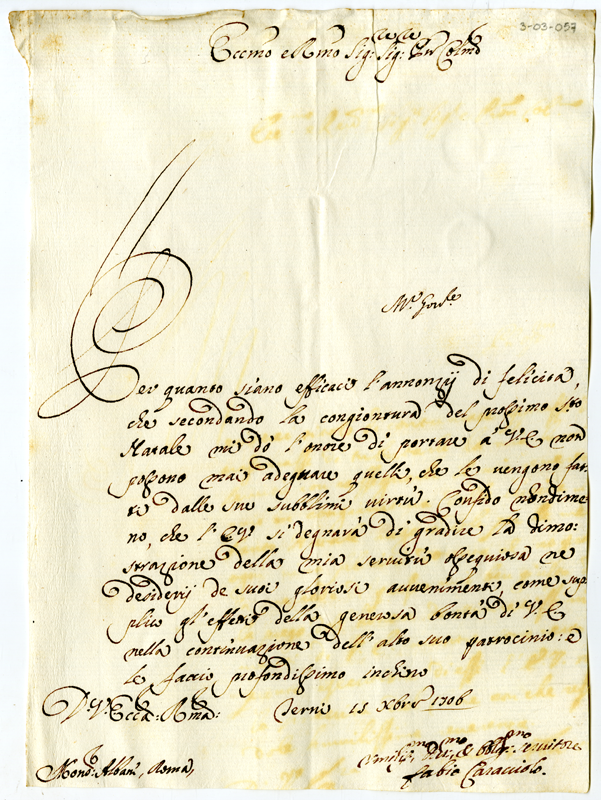 3-03-057
Eccmo e Rmo Sig:re Sig:re Pne Colmo
Per quanto siano efficaci l'annonzij di felicità,
che secondando la congiontura del prossimo Sto
Natale mi dò l'onore di portare a V.E non
possono mai adequare quelli, che le vengono fat-
ti dalle sue subblimi virtù. Confido nondime-
no, che l'E.V. si degnarà di gradire la dimo-
strazione della mia servitù ossequiosa ne
desiderij de suoi gloriosi avvenimenti, come sup-
plico gl'effetti della generosa bontà di V.E
nella continuazione dell'alto suo patrocinio: e
le faccio profondissimo inchino
D. V. Ecca: Rma: Terni 15 Xbre 1706
Mons: Albani, Roma, Umiliss.mo Dev.mo et Obblig.mo servitore
Fabio Caracciolo.